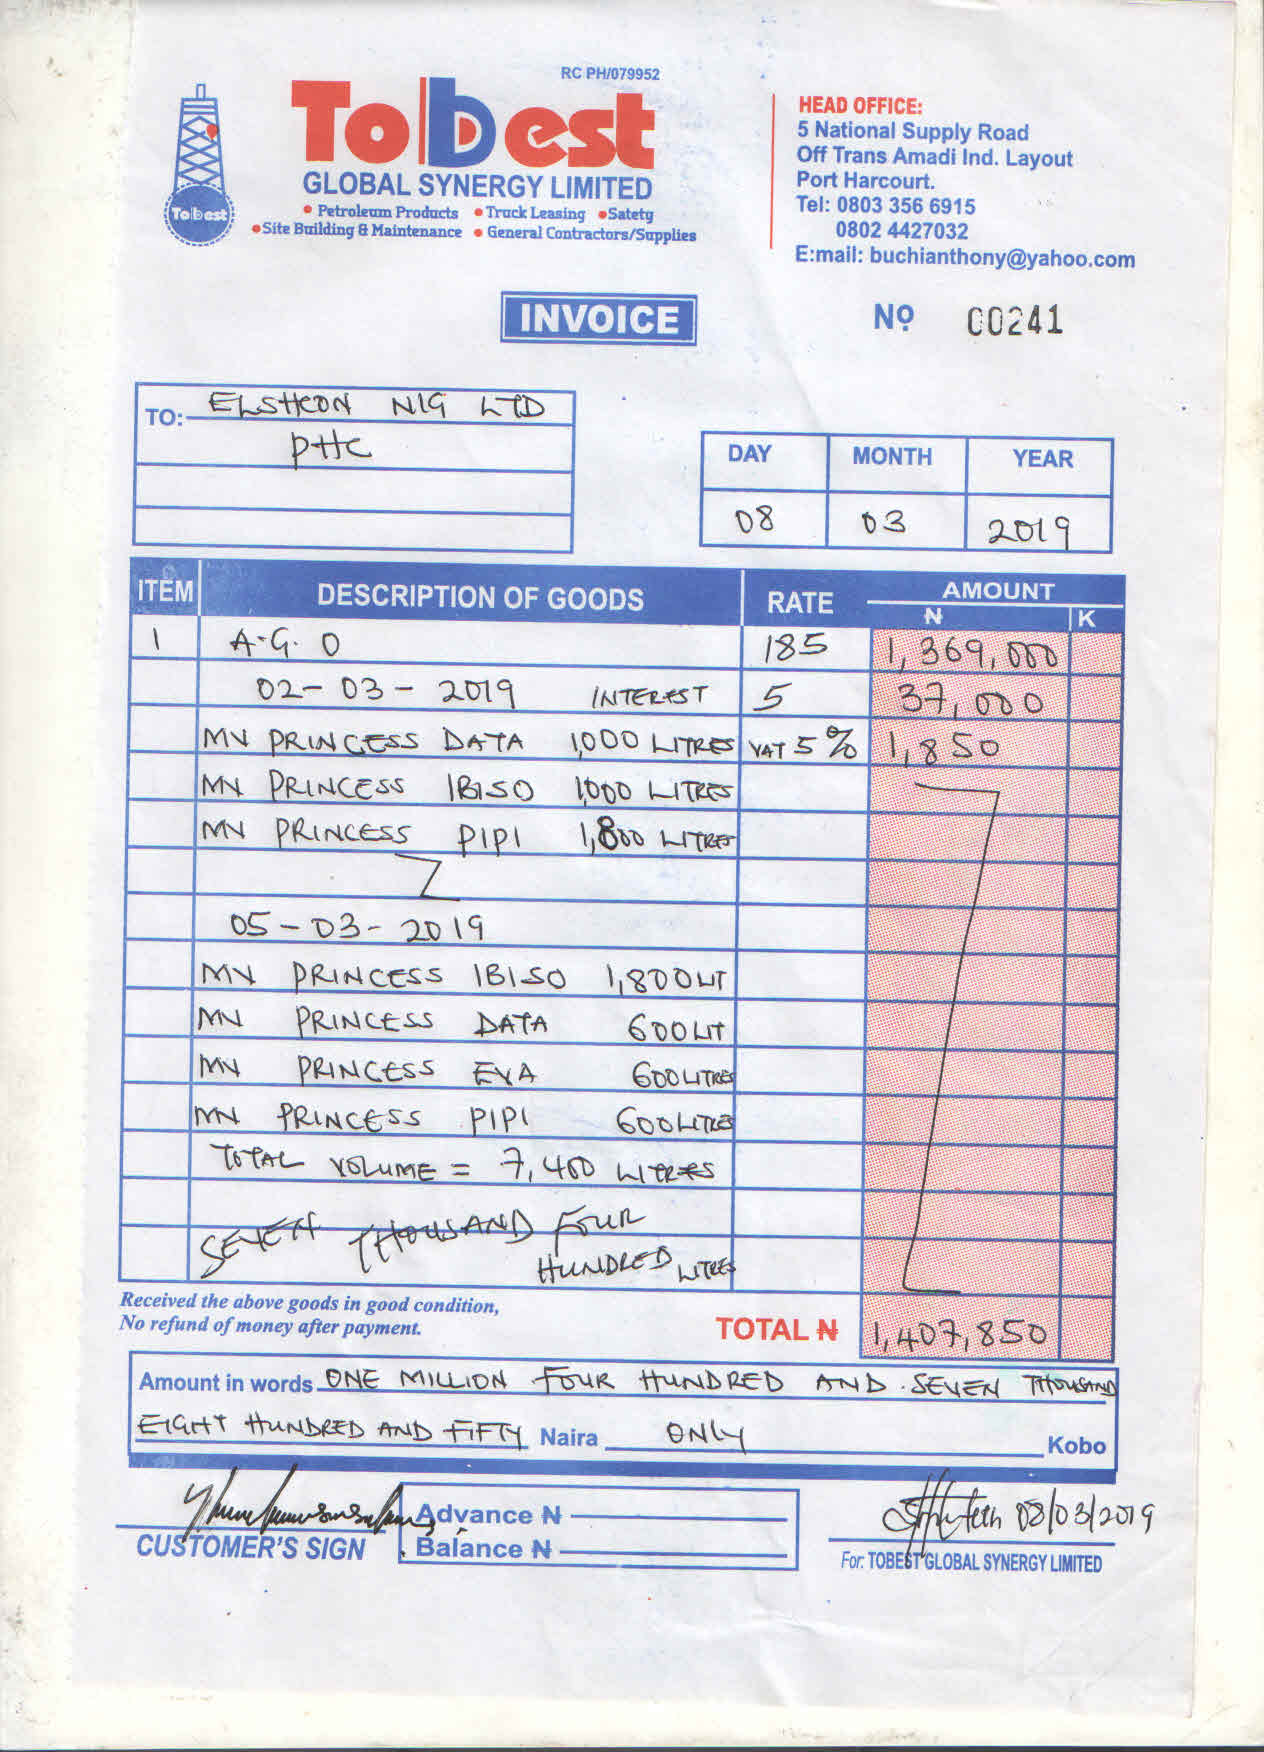 RC PH/079952
Tobest
GLOBAL SYNERGY LIMITED
• Petroleum Products • Truck Leasing • Satety
• Site Building & Maintenance • General Contractors/Supplies
Tobest
HEAD OFFICE:
5 National Supply Road
Off Trans Amadi Ind. Layout
Port Harcourt.
Tel: 0803 356 6915
0802 4427032
E:mail: buchianthony@yahoo.com
INVOICE
Nº 00241
TO: ELSHCON NIG LTD
PHC
DAY MONTH YEAR
08 03 2019
ITEM DESCRIPTION OF GOODS RATE AMOUNT
₦ K
1 A.G.O 185 1,369,000
02-03-2019 INTEREST 5 37,000
MV PRINCESS DATA 1,000 LITRES VAT 5% 1,850
MV PRINCESS IBISO 1,000 LITRES
MV PRINCESS PIPI 1,800 LITRES
05-03-2019
MV PRINCESS IBISO 1,800 LIT
MV PRINCESS DATA 600 LIT
MV PRINCESS EVA 600 LITRES
MV PRINCESS PIPI 600 LITRES
TOTAL VOLUME = 7,400 LITRES
SEVEN THOUSAND FOUR
HUNDRED LITRES
Received the above goods in good condition,
No refund of money after payment.
TOTAL ₦ 1,407,850
Amount in words ONE MILLION FOUR HUNDRED AND SEVEN THOUSAND
EIGHT HUNDRED AND FIFTY Naira ONLY Kobo
Advance ₦
Balance ₦
CUSTOMER'S SIGN
08/03/2019
For: TOBEST GLOBAL SYNERGY LIMITED